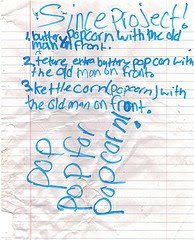 Since Project!
1. buttery popcorn with the old
man on front.
2. extra buttery pop corn with
the old man on front.
3. kettle corn (popcorn) with
the old man on front.
pop
pop far
popcorn!